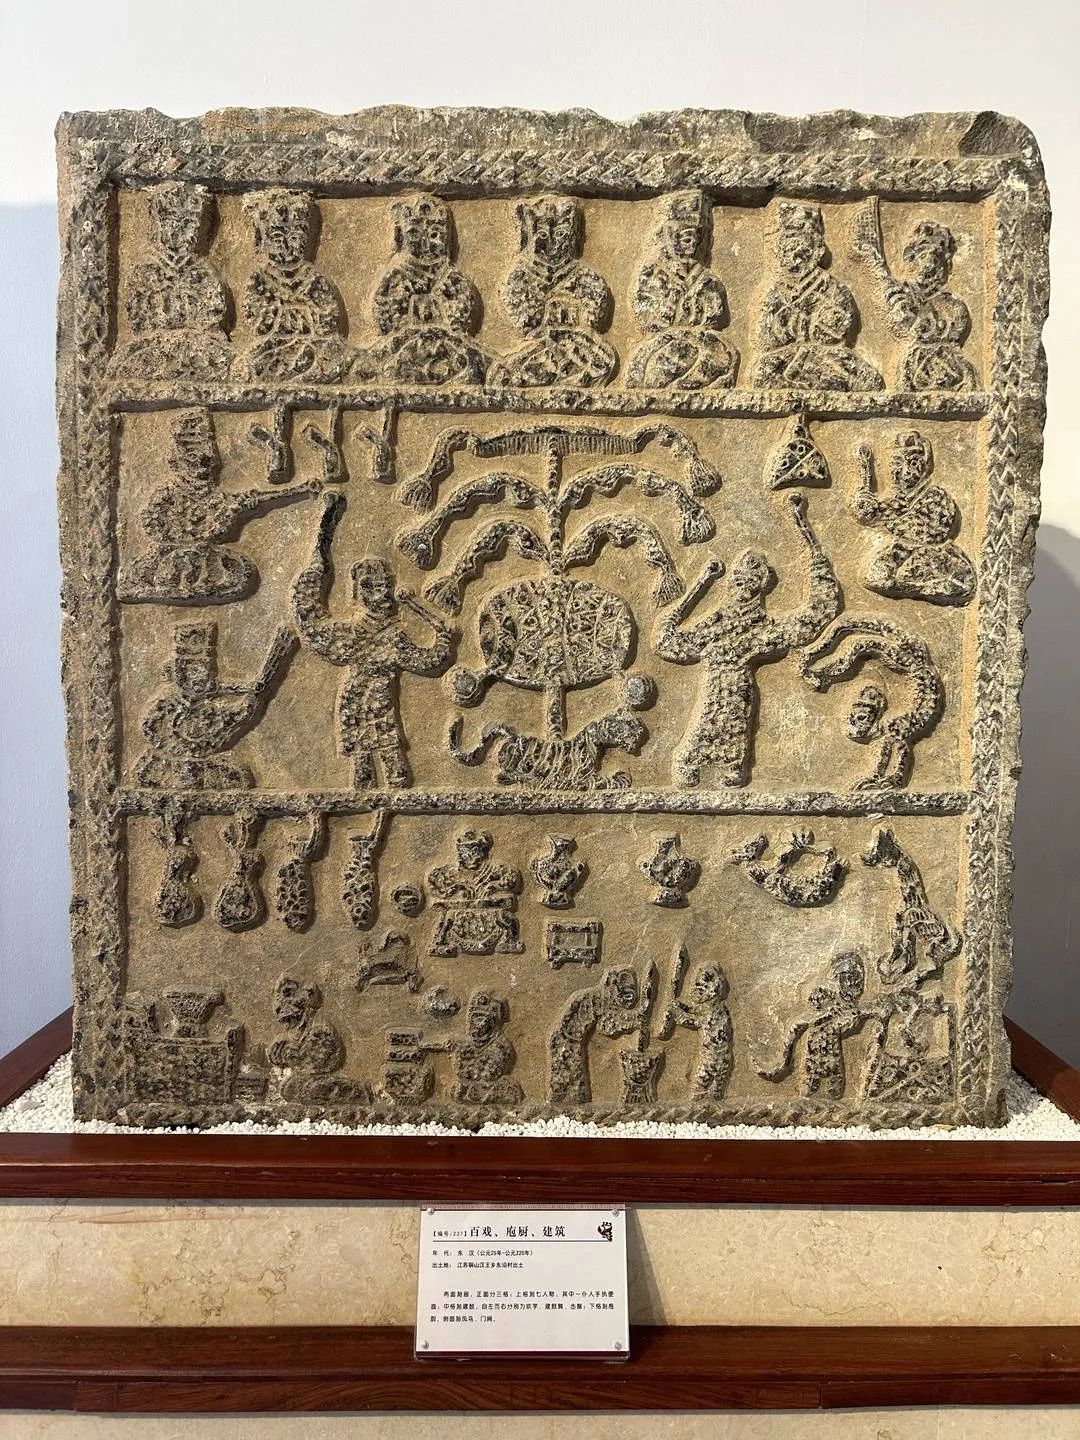 【编号:237】百戏、庖厨、建筑
年 代： 东 汉（公元25年-公元220年）
出土地： 江苏铜山汉王乡东沿村出土
两面刻画，正面分三格：上格刻七人物，其中一仆人手执便
面；中格刻建鼓，自左而右分别为吹竽、建鼓舞、击
下格刻庖
厨，侧面刻凤鸟、门阙。